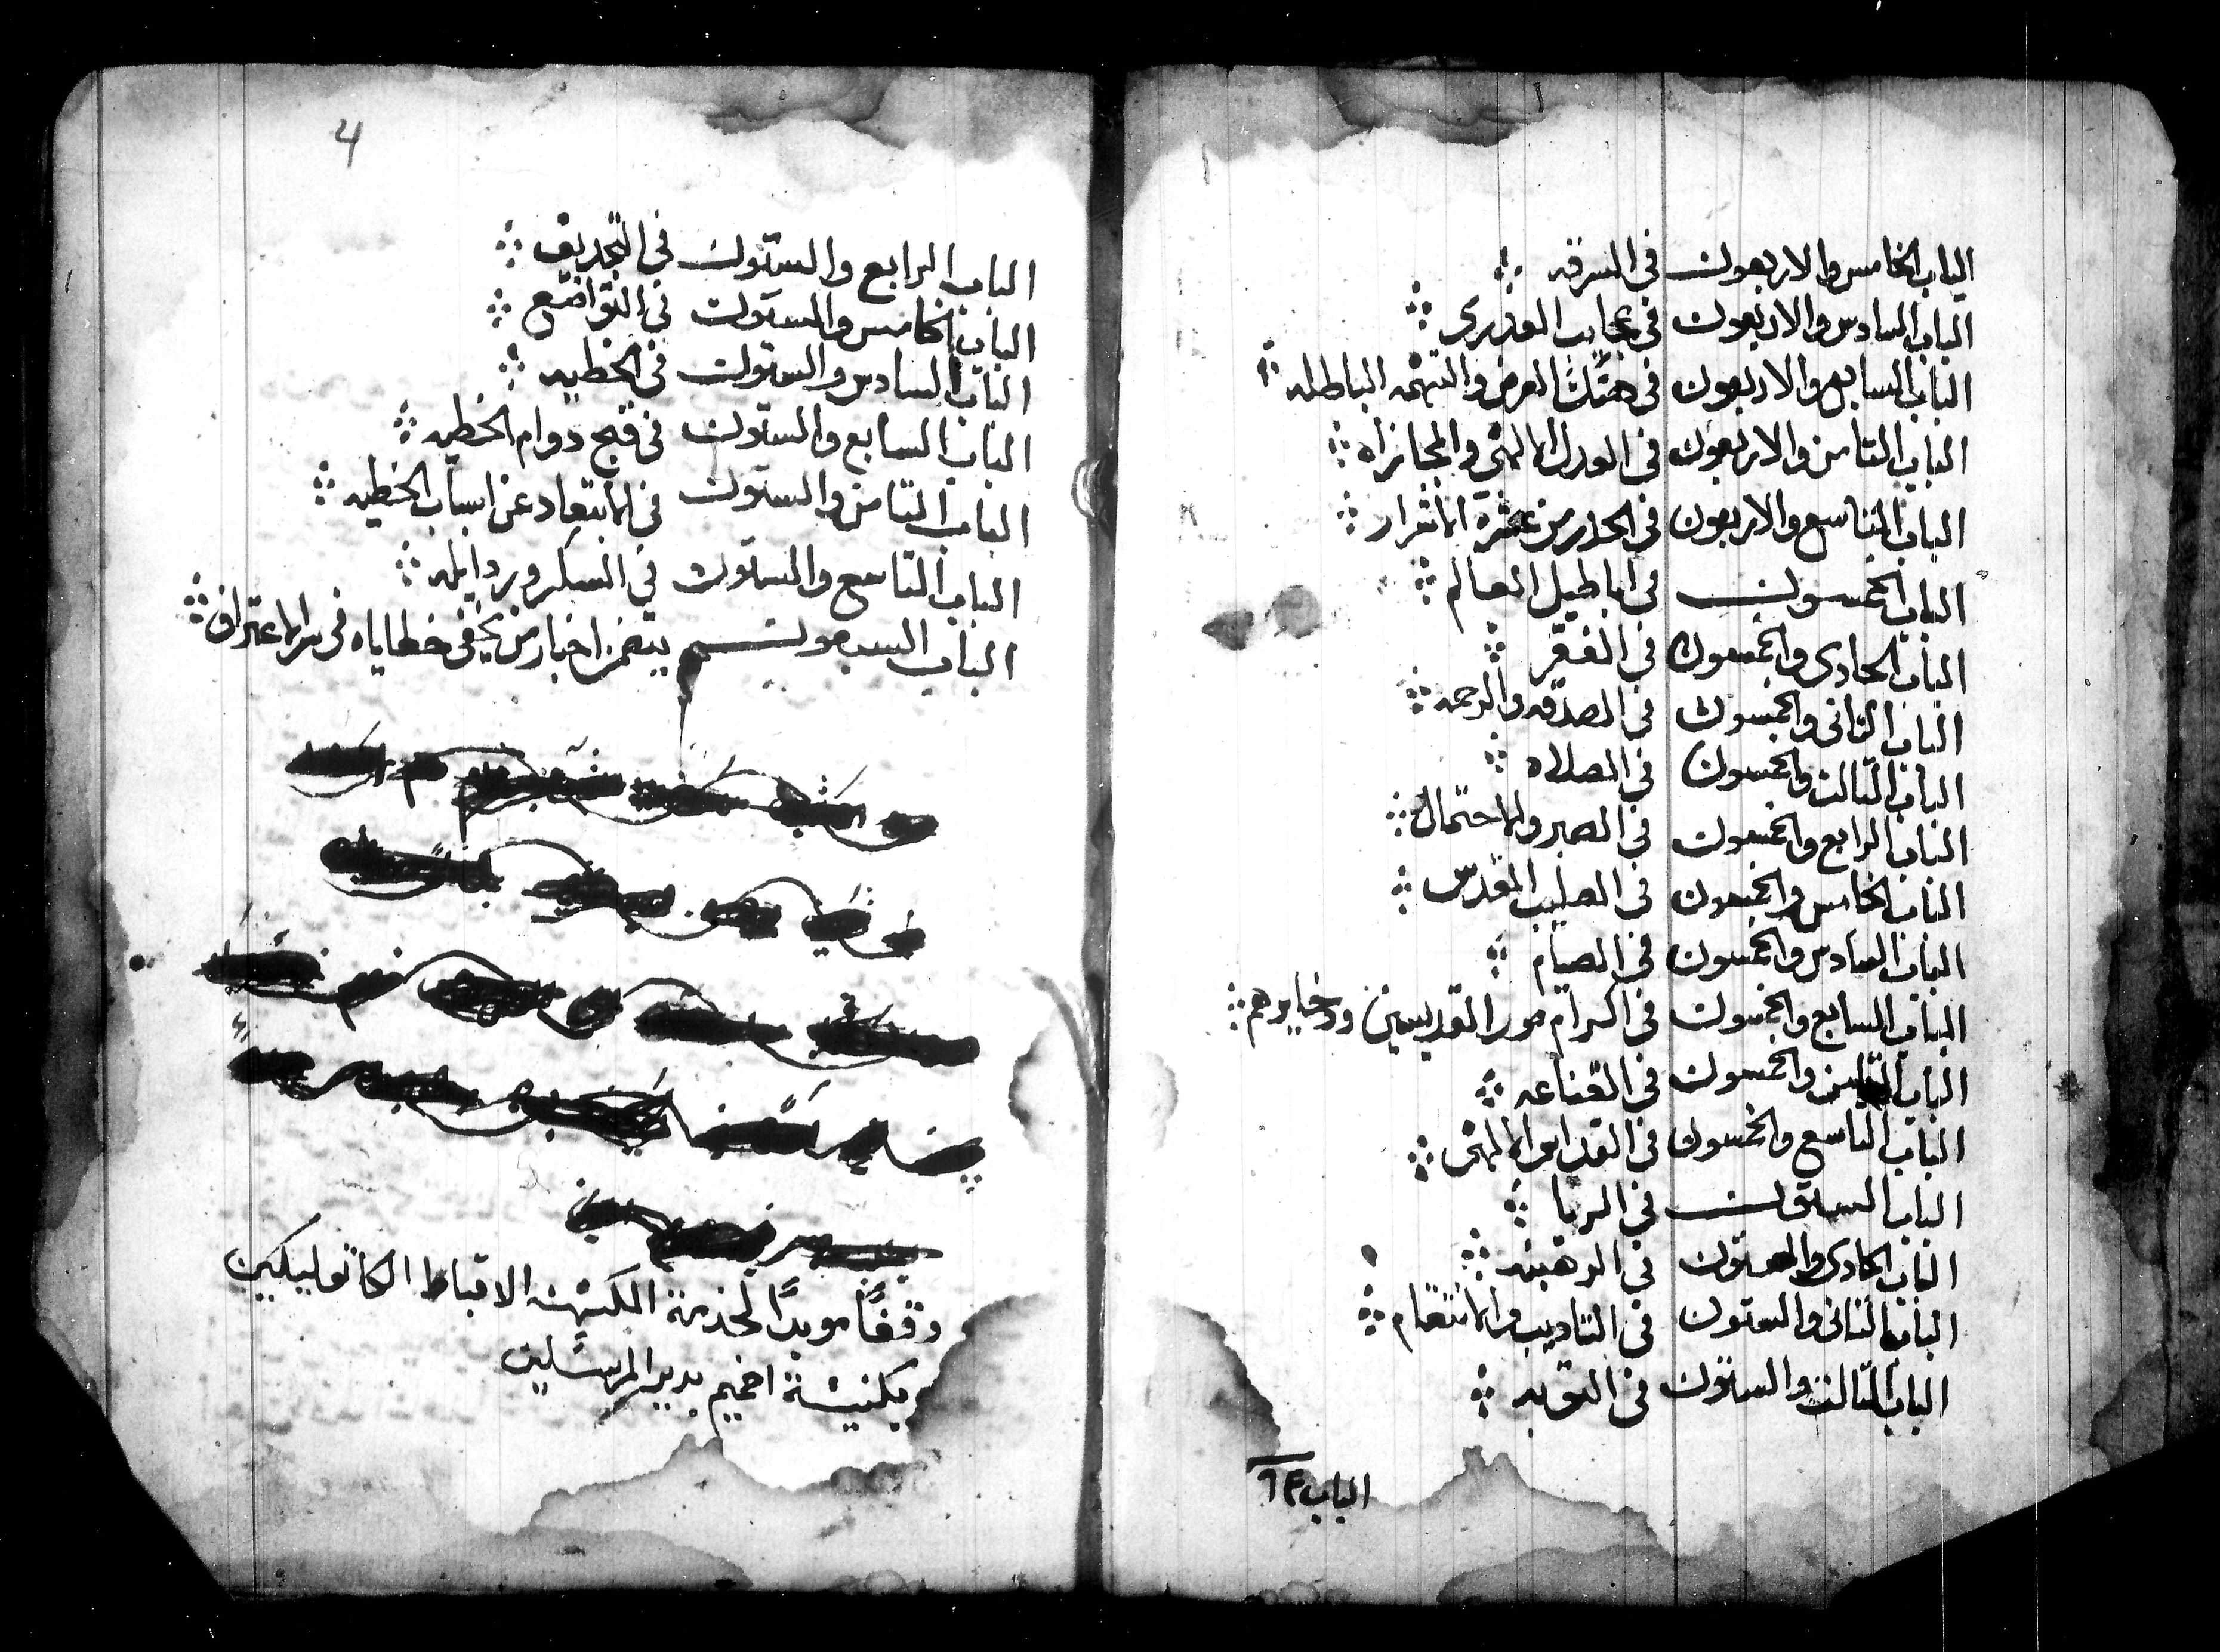 الباب الخامس والاربعون في السرقه
الباب السادس والاربعون في عجايب العدرى
الباب السابع والاربعون في هتك العرض والتهمه الباطله
الباب التامن والاربعون في العدل الالهى والمجازاه
الباب التاسع والاربعون في الحدر من عشرة الاشرار
الباب الخمسون في اباطيل العالم
الباب الحادى والخمسون في الفقر
الباب التانى والخمسون في الصدقه والرحمه
الباب التالت والخمسون في الصلاه
الباب الرابع والخمسون في الصبر والاحتمال
الباب الخامس والخمسون في الصليب المقدس
الباب السادس والخمسون في الصيام
الباب السابع والخمسون في اكرام صور القديسين ودخايرهم
الباب التامن والخمسون في القناعه
الباب التاسع والخمسون في القداس الالهى
الباب الستون في الربا
الباب الحادى والستون في الرهبنه
الباب التانى والستون في التاديب والانتقام
الباب التالت والستون في التوبه
الباب ٦٤
4
الباب الرابع والستون في التجديف
الباب الخامس والستون في التواضع
الباب السادس والستون في الخطيه
الباب السابع والستون في قبح دوام الخطيه
الباب التامن والستون في الابتعاد عن اسباب الخطيه
الباب التاسع والستون في السكر وردايله
الباب السبعون يتضمن اخبار من يخفى خطاياه في سر الاعتراف
وقفًا موبدًا لخدمة الكهنه الاقباط الكاتوليكيين
بكنيسة اخميم بدير المرسلين